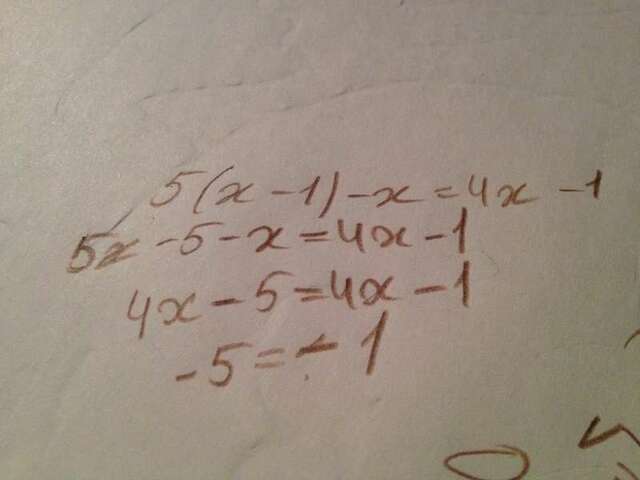 5(x-1)-x=4x-1
5x-5-x=4x-1
4x-5=4x-1
-5=-1